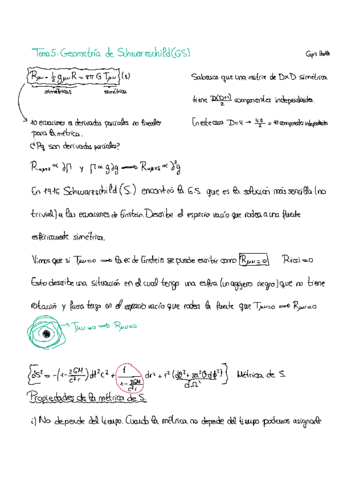 Tema 5: Geometría de Schwarzschild (GS)
{Rμν - 1/2 gμν R = 8πG Tμν} (1)
simétricas simétricas
Sabemos que una matriz de DxD simétrica
tiene D(D+1)/2 componentes independientes.
En este caso D=4 → 4·5/2 = 10 componentes independientes
10 ecuaciones a derivadas parciales no lineales
para la métrica.
¿Pq son derivadas parciales?
Rαμνβ ∝ ∂Γ y Γ ∝ g∂g → Rαμνβ ∝ ∂²g
En 1916 Schwarzschild (S.) encontró la G.S. que es la solución más sencilla (no
trivial) a las ecuaciones de Einstein. Describe el espacio vacío que rodea a una fuente
esféricamente simétrica.
Vimos que si Tμν=0 → la ec de Einstein se puede escribir como Rμν=0 Ricci=0
Esto describe una situación en el cual tengo una esfera (un agujero negro) que no tiene
rotación y fuera tengo en el espacio vacío que rodea la fuente que Tμν=0 → Rμν=0
Tμν=0 → Rμν=0
{dS² = -(1-2GM/c²r)dt²c² + 1/(1-2GM/c²r) dr² + r²(dθ²+sin²θdϕ²)} Métrica de S.
dΩ²
Propiedades de la métrica de S.
i) No depende del tiempo. Cuando la métrica no depende del tiempo podemos asignarle